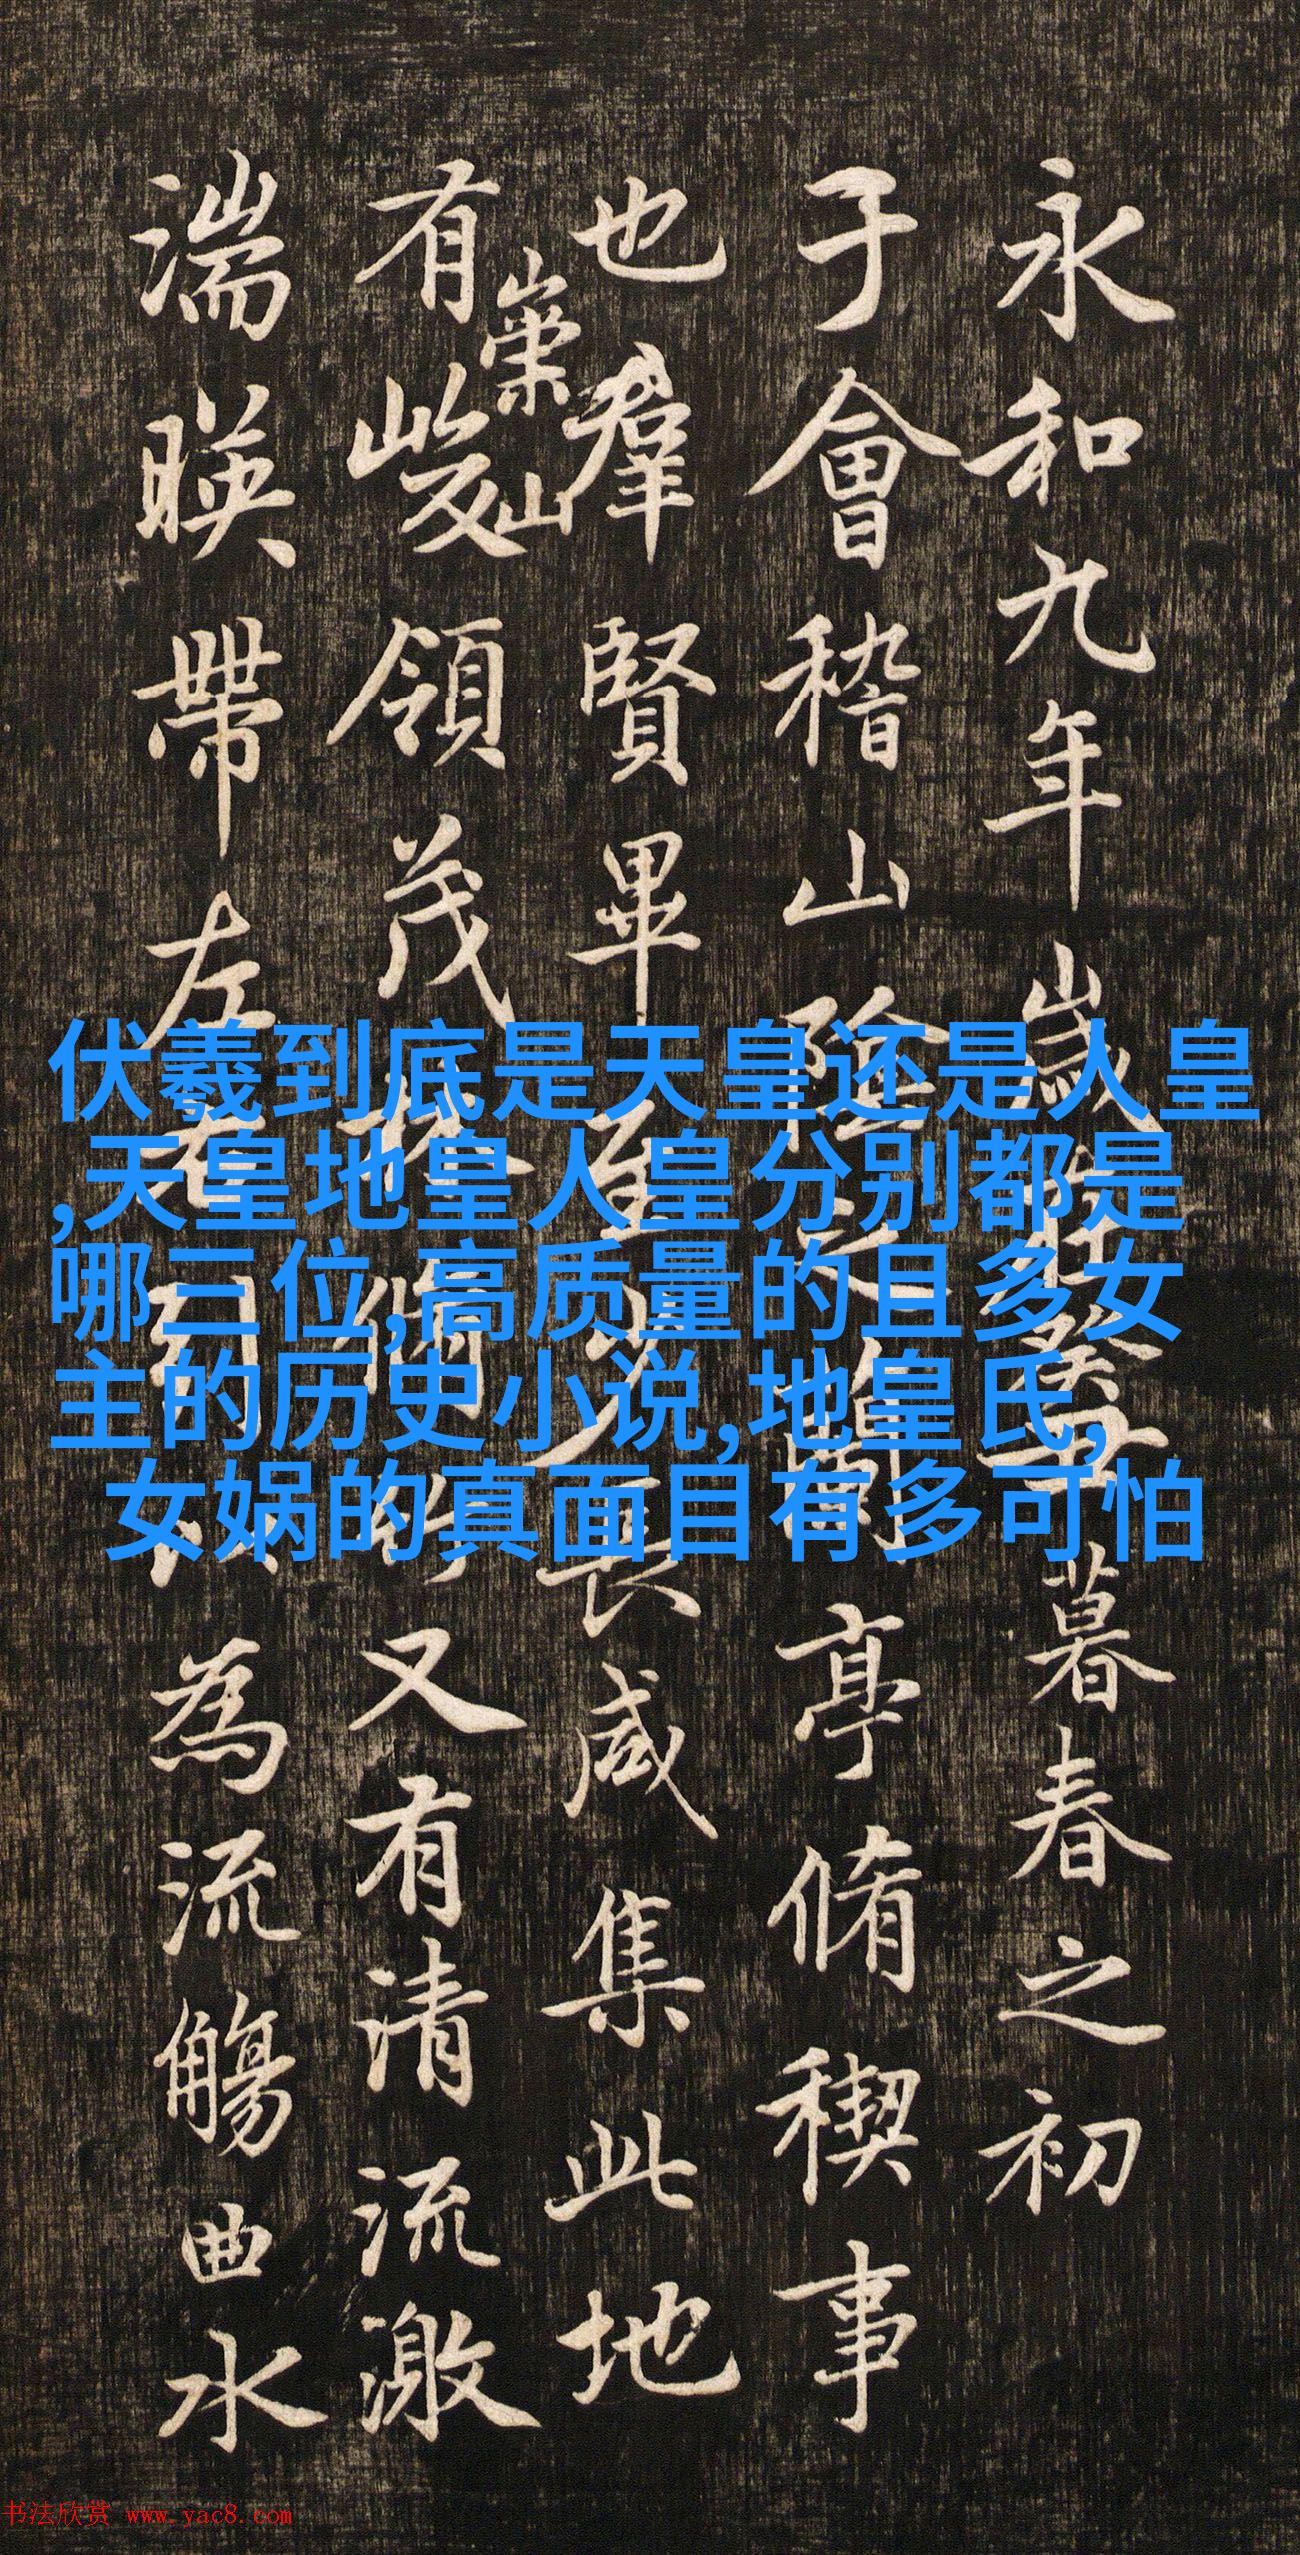 永和九年歲在癸丑暮春之初
于會稽山陰之蘭亭脩稧事
也羣賢畢至少長咸集此地
有崇山峻領茂林脩竹又有清流激
湍暎帶左右引以為流觴曲水
伏羲到底是天皇还是人皇
,天皇地皇人皇分别都是
哪三位,高质量的且多女
主的历史小说,地皇氏,
女娲的真面目有多可怕
书法欣赏 www.yac8.com